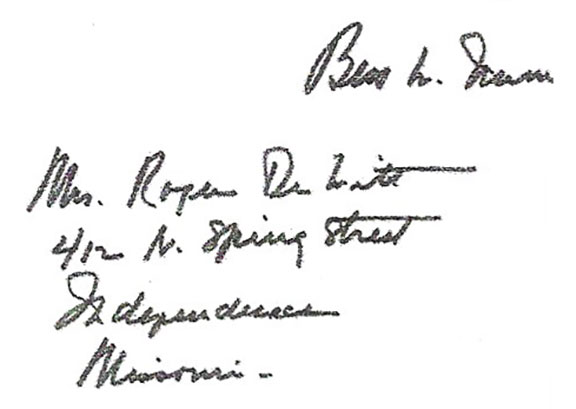 Bess W. Truman
Mrs. Roger De Witt
412 N. Spring Street
Independence
Missouri -